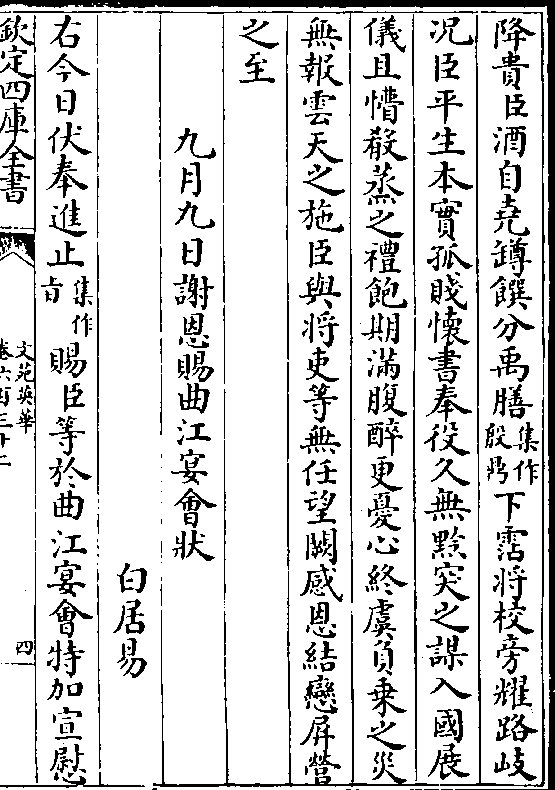 降貴臣酒自堯罇饌分禹膳集作殷鼎下霑将校旁耀路岐
况臣平生本實孤賤懷書奉役久無黔突之謀入國展
儀且懵殽蒸之禮飽期滿腹醉更憂心終虞負乗之災
無報雲天之施臣與將吏等無任望闕感恩結戀屏營
之至
九月九日謝恩賜曲江宴會狀
白居易
右今日伏奉進止集作旨賜臣等於曲江宴會特加宣慰
欽定四庫全書
文苑英華
卷六百三十二
四